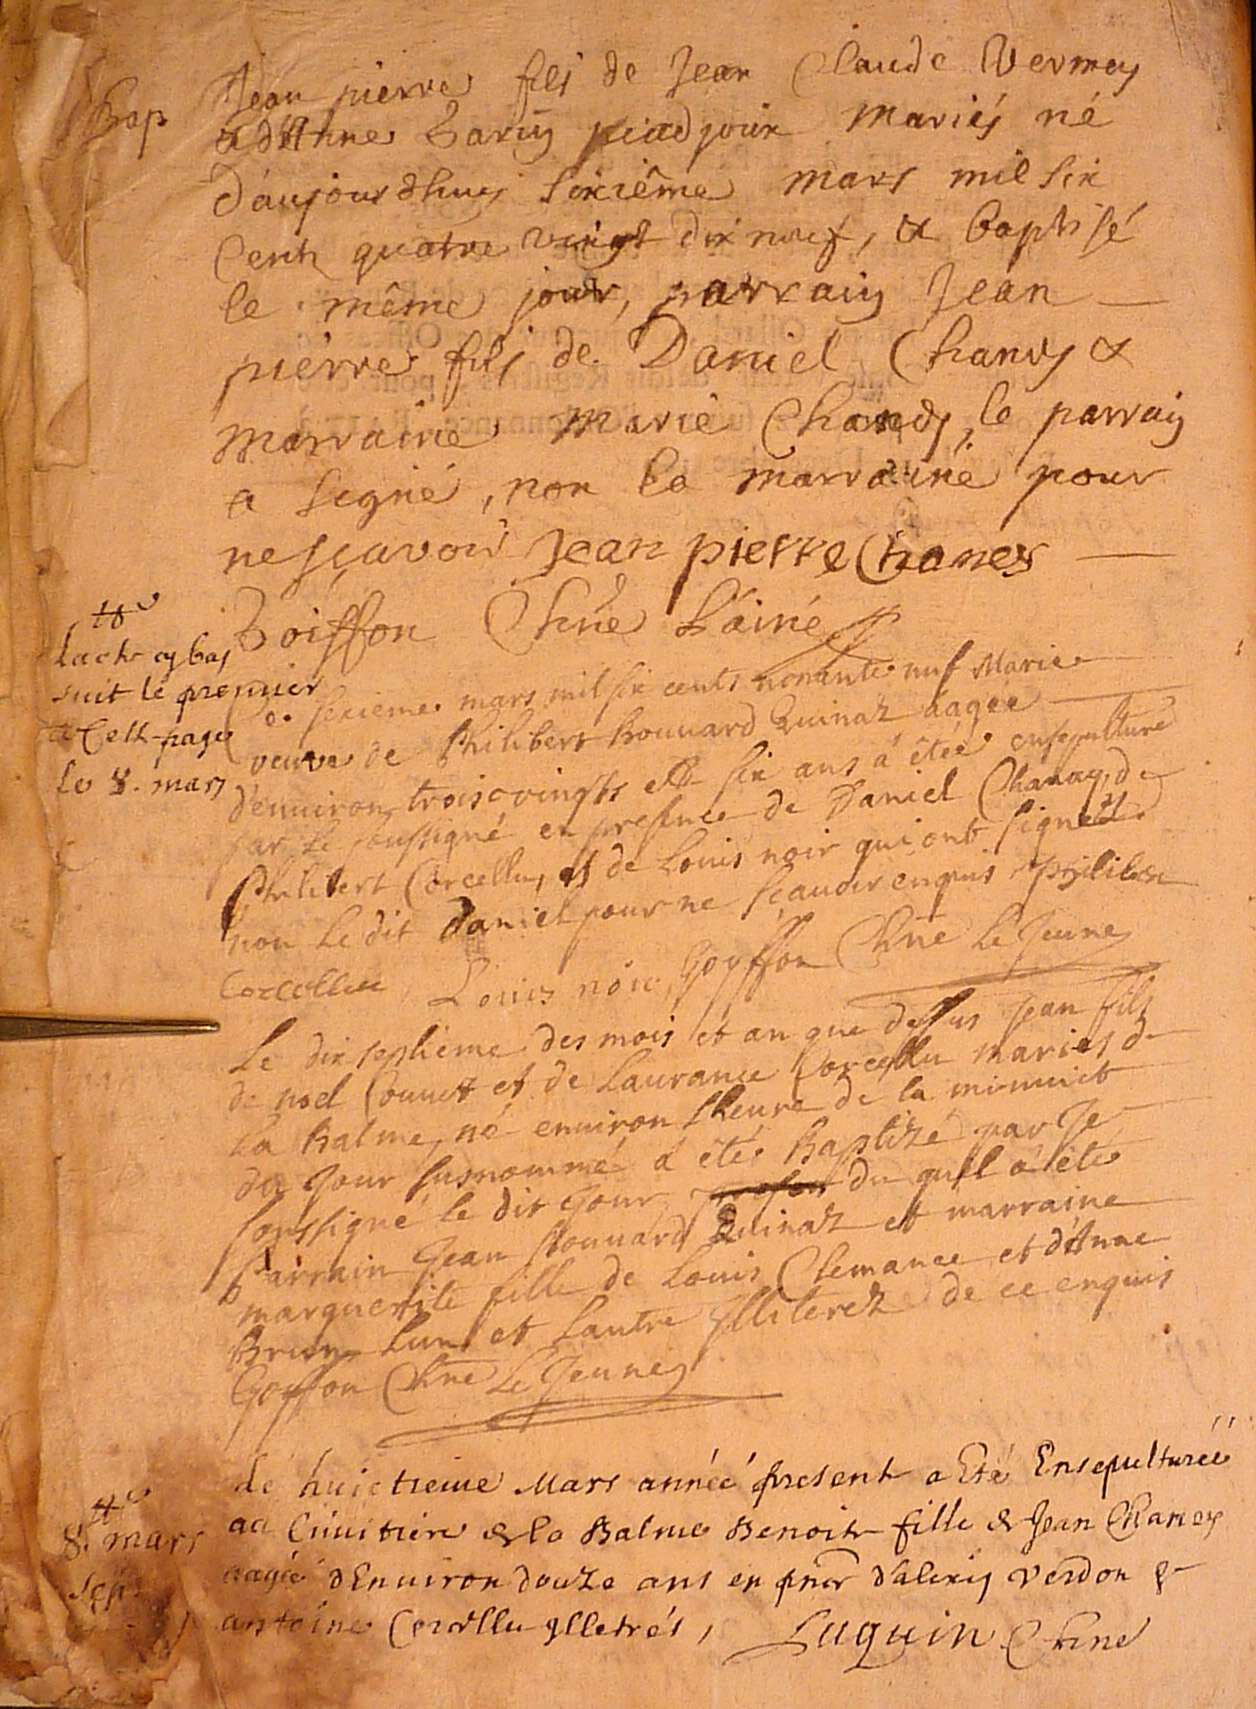 Bap
Jean pierre fils de Jean Claude Vermey
& d'Anne Tavuy piedjoux Mariés né
d'aujourdhuy sixième mars mil six
Cent quatre vingt dix neuf, & baptisé
le même jour, parrain Jean
pierre fils de Daniel Chaney &
marraine Marie Chaney, le parrain
a signé, non la marraine pour
ne sçavoir Jean pierre Chaney
Goiffon Chne L'ainé
lacte cy bas
suit le premier
de Cette page
le 8. mars
Le sixieme mars mil six cents nonante neuf Marie
veuve de Philibert Bouvard Quinat aagée
d'environ trois vingts et six ans a étée ensepulture
par le soussigné en presence de Daniel Chanay, de
Philibert Corcellu, et de Louis noir qui ont signez
non le dit Daniel pour ne sçavoir enquis philibert
Corcellu, Louis noir, Goyffon Chne Le Jeune
Le dix septieme des mois et an que dessus jean fils
de noel Couvet et de Laurance Corcellu mariés de
la Balme, né environ l'heure de la minuict
du jour susnommé a été Baptizé par Je
soussigné le dit jour du qu'il a été
Parrain Jean Bouvard Quinaz et marraine
marguerite fille de Louis Clemance et d'Anne
Brun, l'un et lautre Illiterez de ce enquis
Goyffon Chne Le Jeune
8. mars
sep.
Le huictieme Mars année present a Eté Ensepulturée
au Cimitiere de la Balme Benoite fille de Jean Chaney
aagée dEnuiron douze ans en pnce d'alexis verdon &
antoine Corcellu Illetrés, Luquin Chne